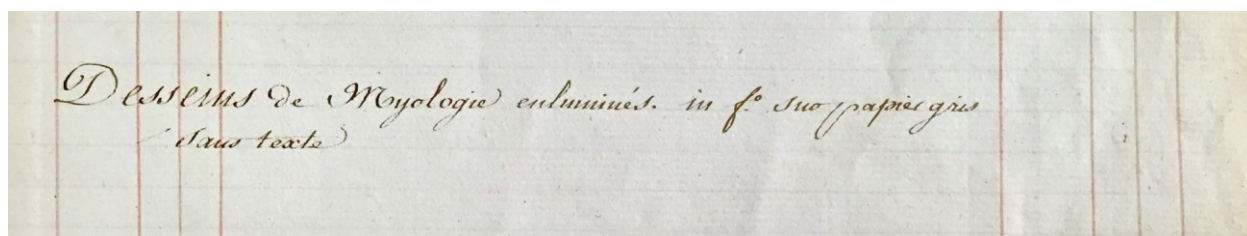 Desseins de Myologie enluminés. in fo. sur papier gris
sans texte